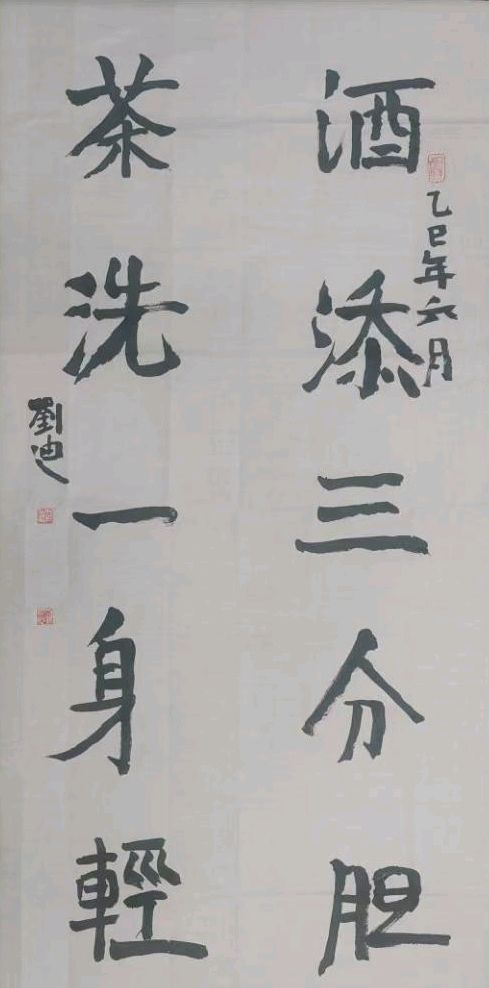 乙巳年六月
酒添三分胆
茶洗一身輕
劉迪